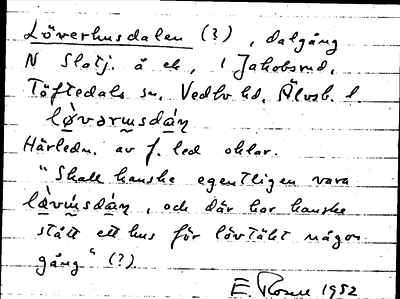 Löverhusdalen (?), dalgång
N Slätj. å ek, i Jakobsrud,
Töftedals sn, Vedbo hd, Älvsb. l.
lø̀vərusdáṇ
Härledn. av f. led oklar.
"Skall kanske egentligen vara
lø̀vúsdáṇ, och där har kanske
stått ett hus för lövtäkt någon
gång" (?)
E. 1952